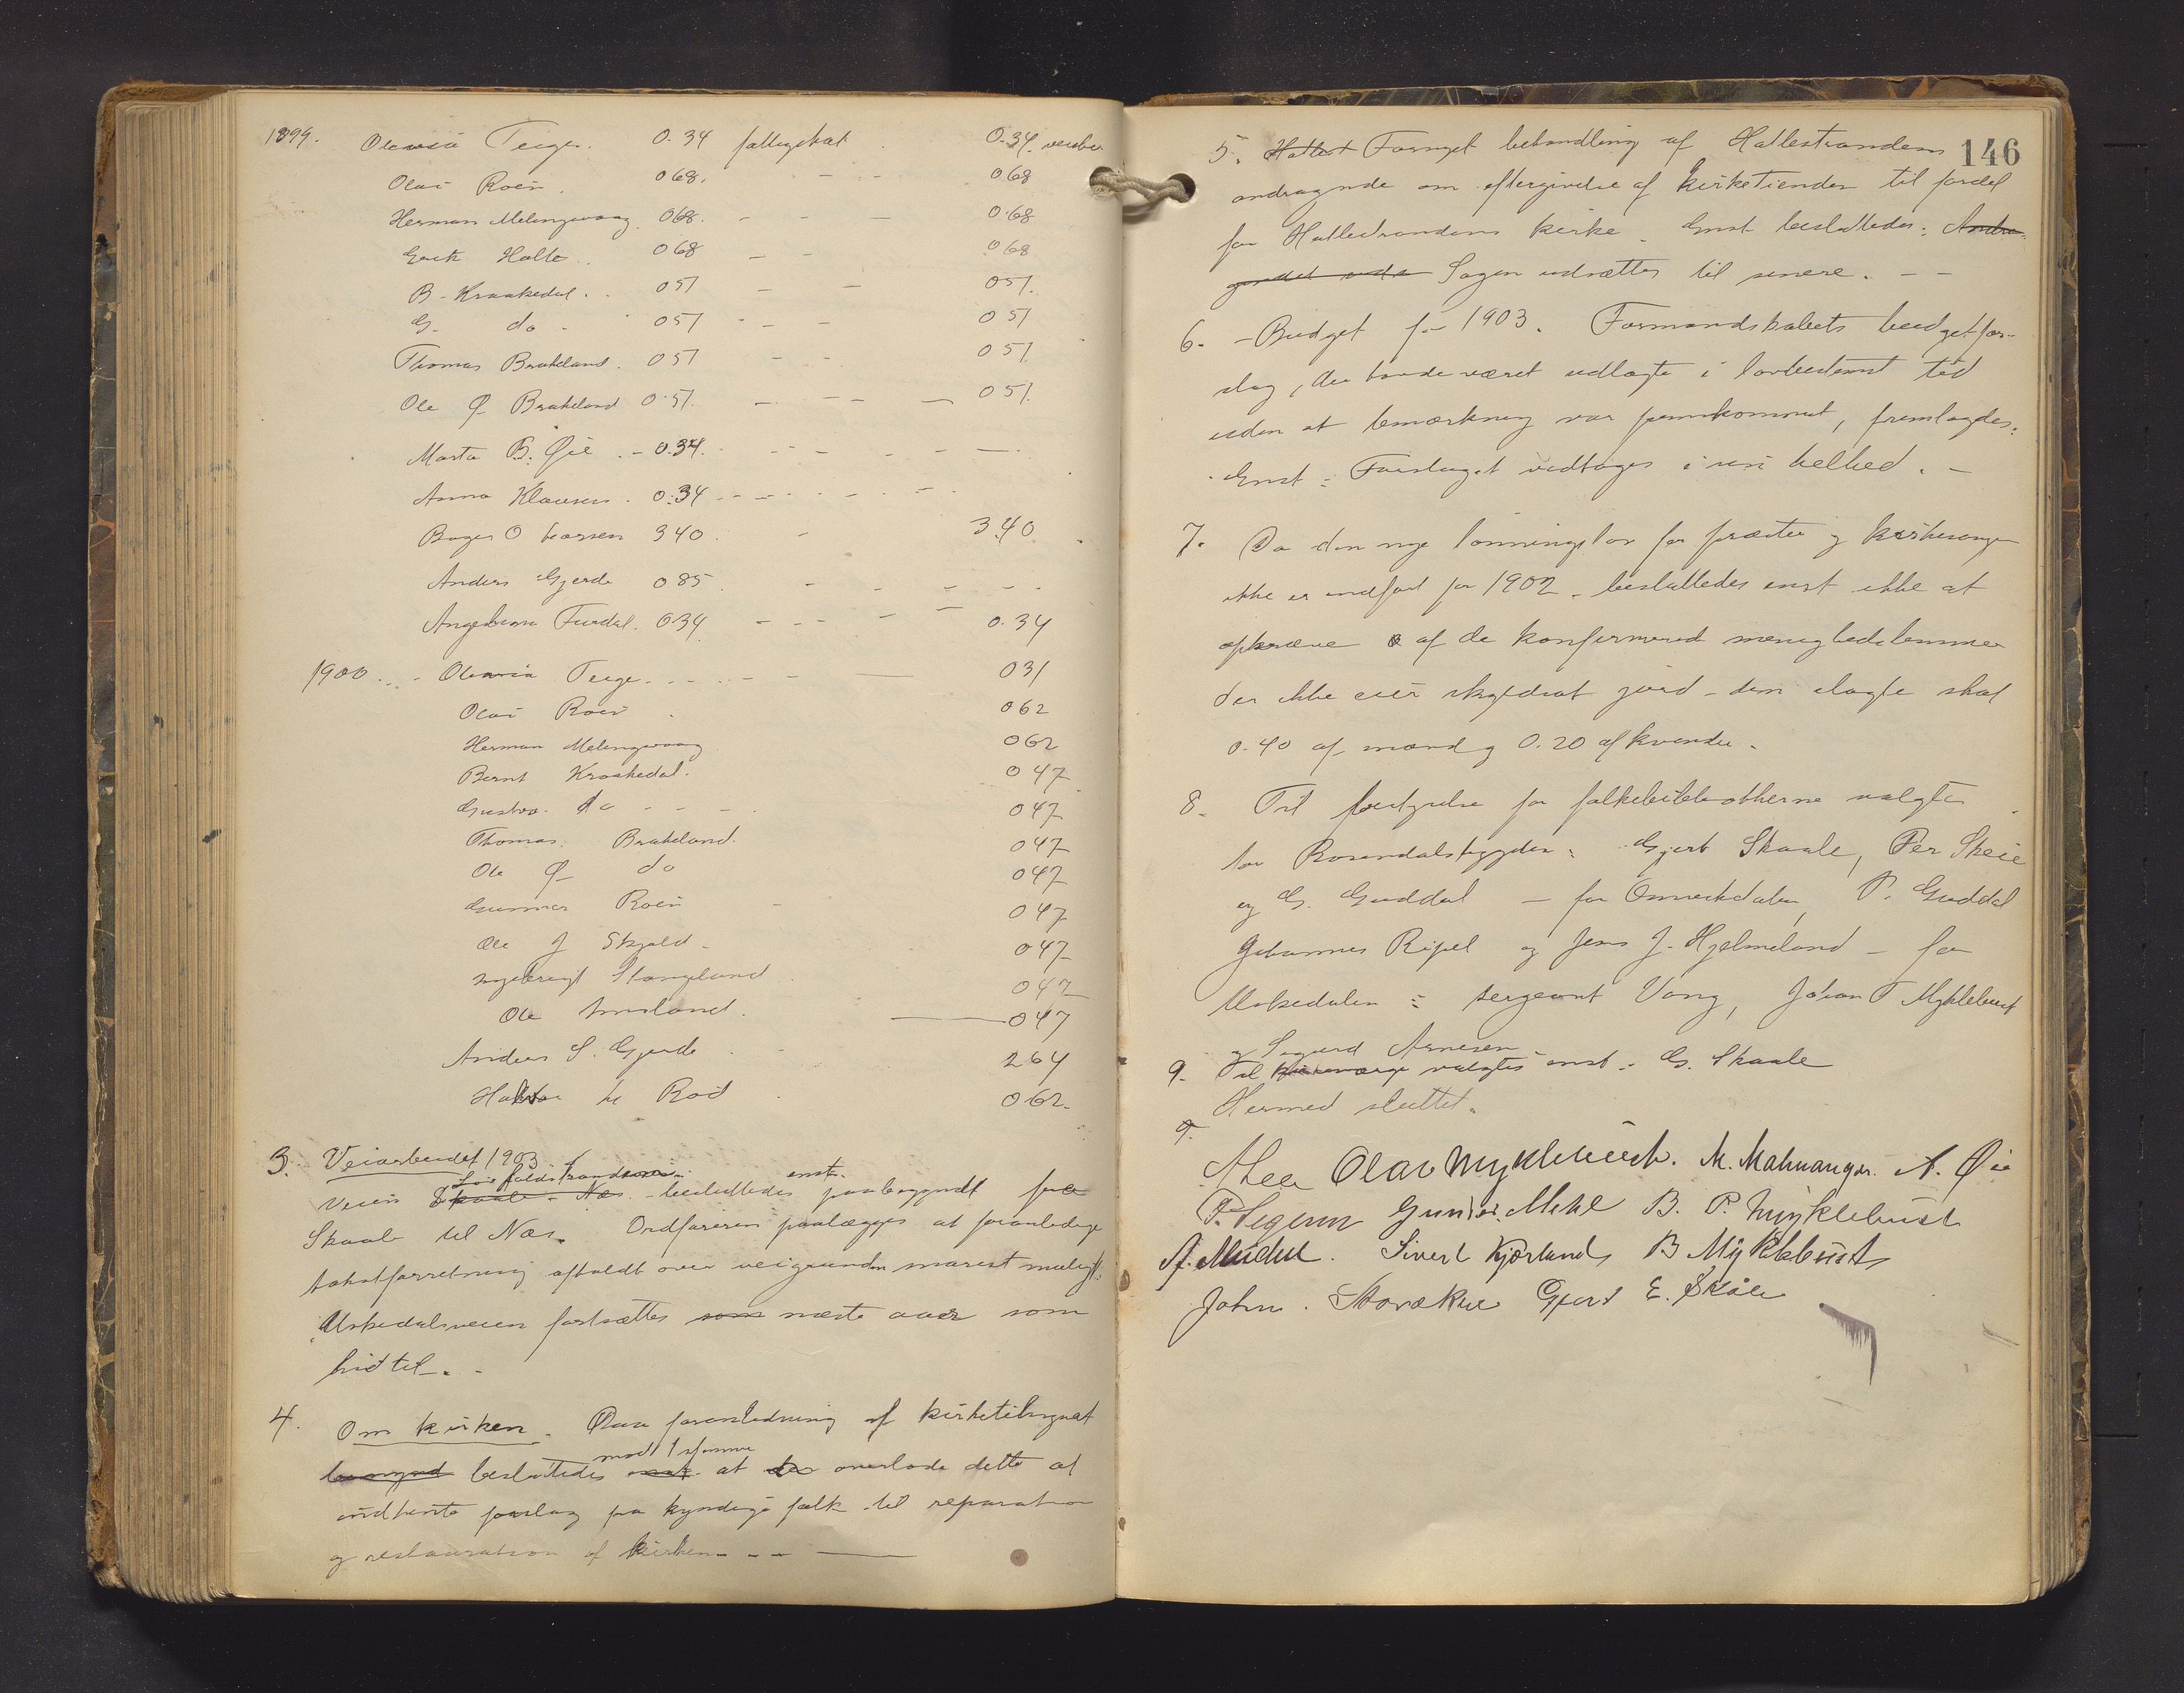 1899. Olavia Teige. 0.34 fattigskat 0.34. veiskat
Olai Roen. 068. - - 068
Herman Melingvaag 068. - - - 0.68
Erik Holte.. 068 - - 068
B. Kraakedal.. 051 - - 051.
G. do - 051 - - - 051
Thomas Brakeland. 051 - - 051.
Ole Ø Brakeland 0.51. - - - — 051.
Marta B. Øie. - 0.34.
Anna Klausen. 0.34
Larsen 340. - 3.40
Anders Gjerde 085.
Furdal. 034 - - - - 0.34
1900... - Olavia Teige. 031
Olai Roen 062
Herman Melingvaag 062
Bernt Kraakedal. 047
Gustav. do - - - 047
Thomas. Brakeland. 047
Ole Ø do 047
Gunnar Roen - 047
Ole J Skjold - 047
047
Ole 047
Anders S. Gjerde 264
Rød 062.
3. Veiarbeidet 1903.
enst.
Veien Skaale - Næs. - besluttedes paabegyndt fra
Skaale til Næs. Ordføreren paalægges at foranledige
takstforretning afholdt over veigrunden snarest muligt.
Uskedalsveien fortsættes som næste aar som
hidtil. -
4. Om kirken. Paa foranledning af kirketilsynet
mod 1 stemme
besluttedes enst. at overlade dette at
indhente forslag fra kyndige folk til reparation
og restauration af kirken - - - —
146
5. Hattest Fornyet behandling af Hattestrandens
andragende om eftergivelse af kirketienden til fordel
for Hattestrandens kirke. Enst besluttedes: Andra-
gendet Sagen udsættes til senere. - -
6. - Budget for 1903. Formandskabets budgetfor-
slag, der havde været udlagte i lovbestemt tid
uden at bemærkning var fremkommet, fremlagdes.
Enst: Forslaget vedtages i sin helhed. -
7. Da den nye lønningslov for præster og kirkesangere
ikke er indført for 1902 - besluttedes enst ikke at
opkræve af de konfirmered menighedslemmer
der ikke eier skyldsat jord - den skat
0.40 af mænd og 0.20 af kvinder.
8. Til bestyrelse for folkebibliothekerne valgtes
for Rosendalsbygden: Gjert Skaale, Per Skeie
og G. Guddal - for Omvikdalen, P. Guddal
Johannes Ripel og Jens J. Hjelmeland - for
Uskedalen: sergeant Vang, Johan T Myklebust
og Sigurd Arnesen
9. Til kirkeværge valgtes enst: G. Skaale
Hermed sluttet.
9.
Olav Myklebust. M. Malmanger. A. Øie
P. Gunnar Mehl B. P. Myklebust
Sivert Kjærland B Myklebust
John. Gjert E. Skåle